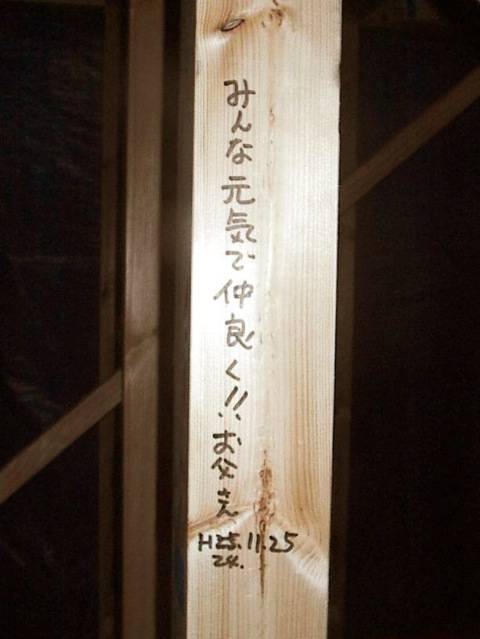 みんな元気で仲良く!! お父さん
H25.11.25
24.